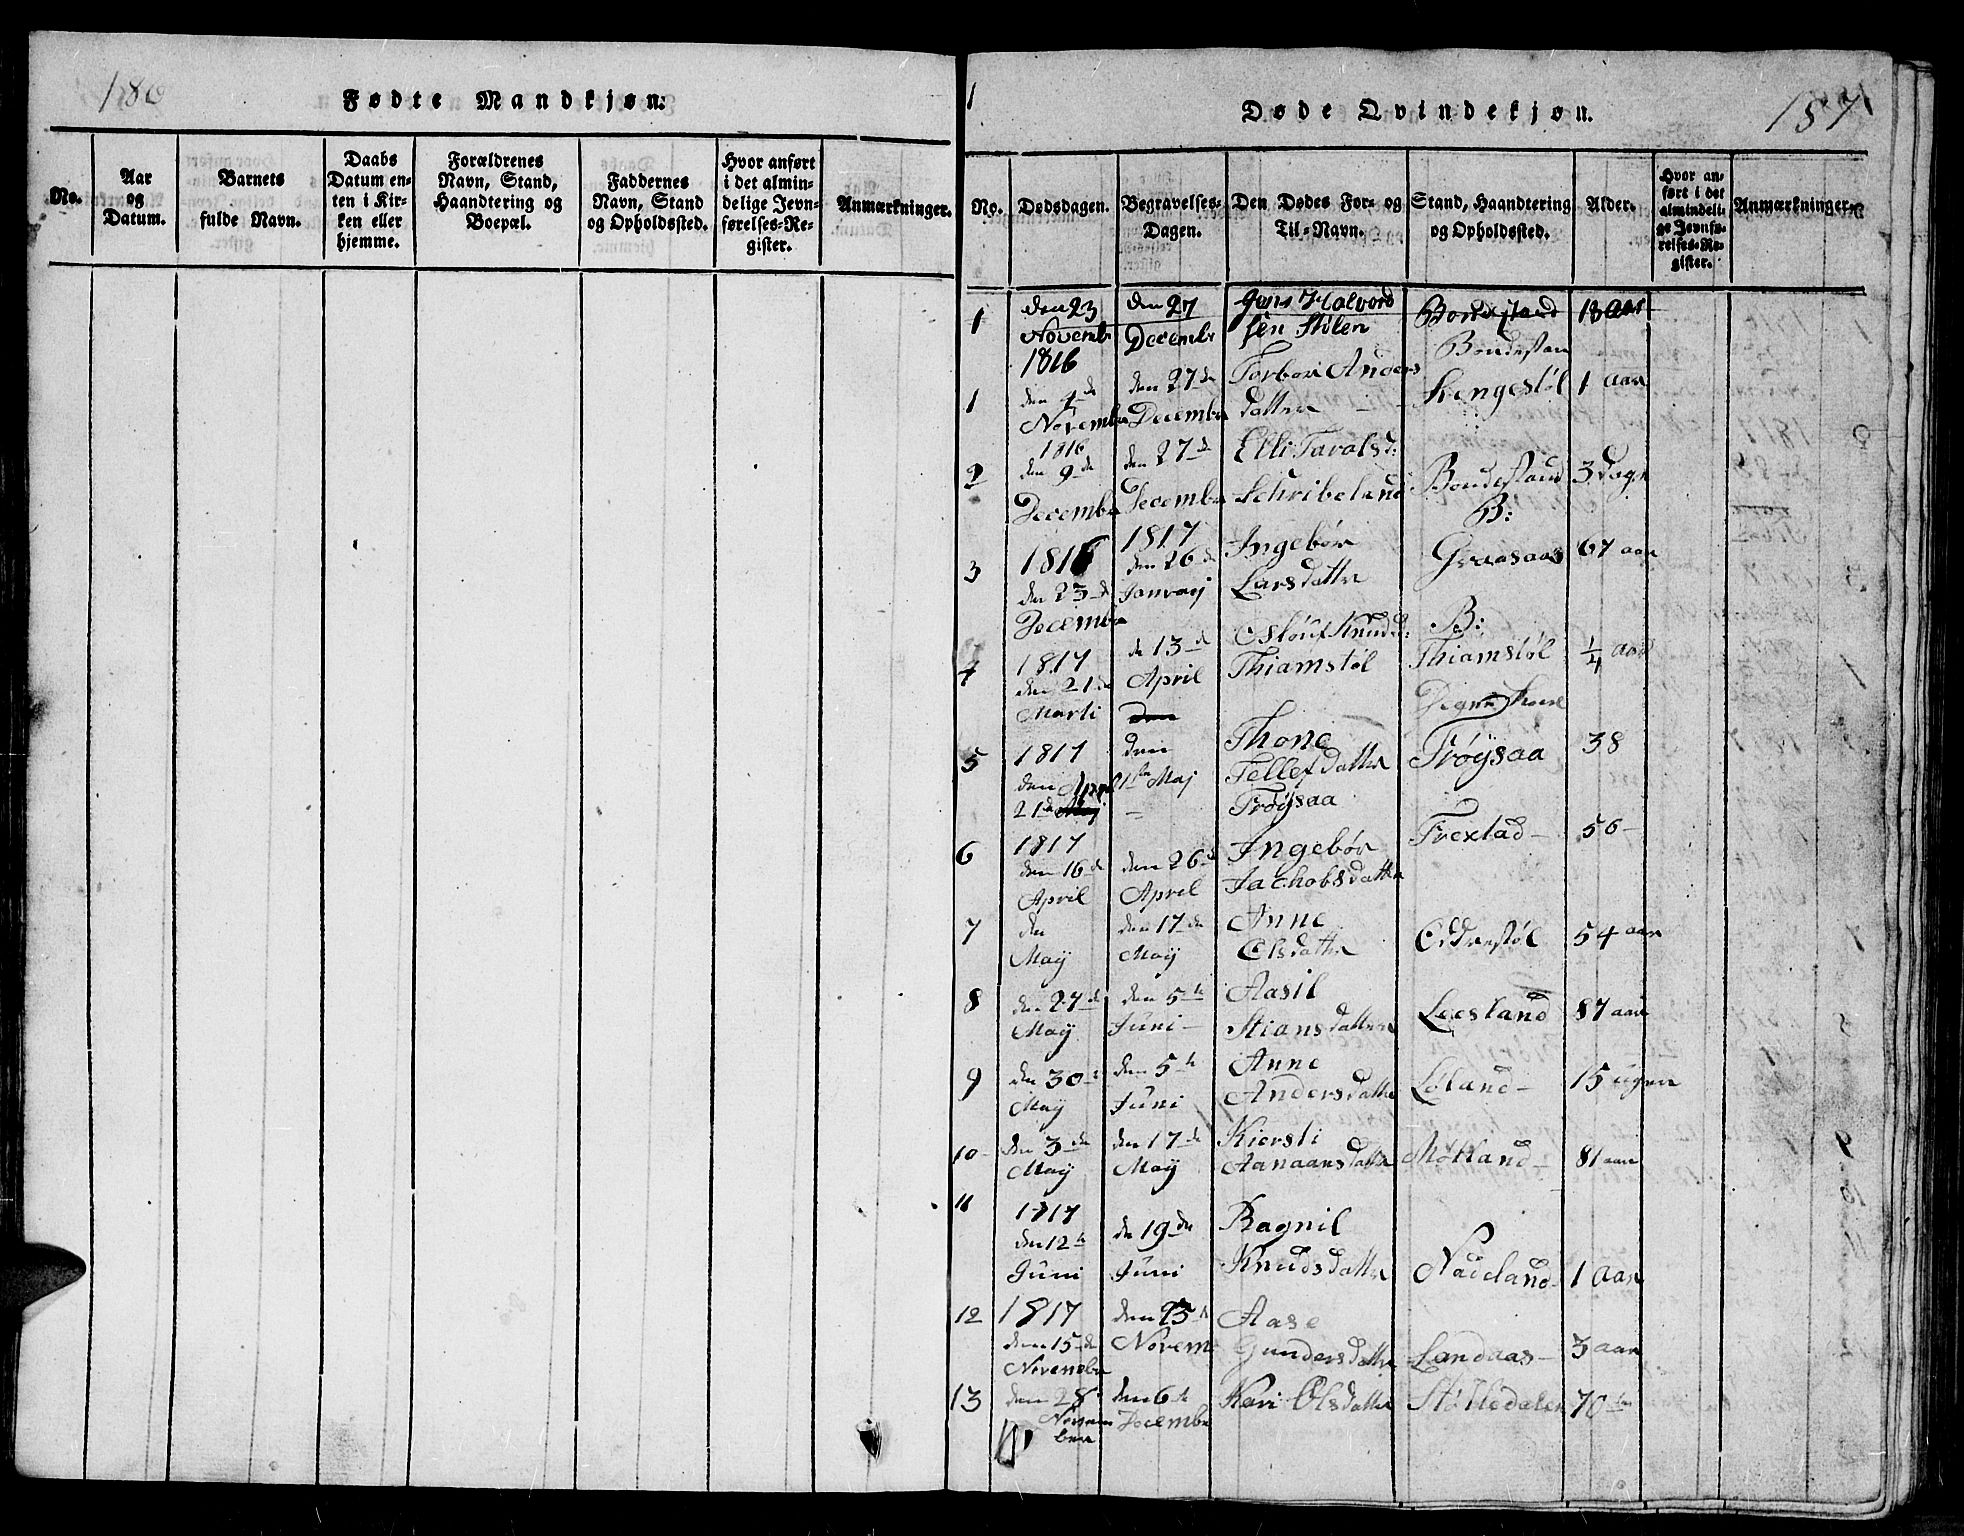 186
Fødte Mandkjøn.
No.
Aar
og
Datum.
Barnets
fulde Navn.
Daabs
Datum en-
ten i Kir-
ken eller
hjemme.
Forældrenes
Navn, Stand,
Haandtering og
Boepæl.
Faddernes
Navn, Stand
og Opholdssted.
Hvor anført
i det almin-
delige Jevn-
førelses-Re-
gister.
Anmærkninger.
1
Døde Qvindekjøn.
187
No.
Dødsdagen.
Begravelses-
Dagen.
Den Dødes For- og
Til-Navn.
Stand, Haandtering
og Opholdssted.
Alder.
Hvor an-
ført i det
almindeli-
ge Jevnfø-
relses-Re-
gister.
Anmærkninger.
1
den 23
Novembr
1816
den 27
Decembr
Jens Halvord
sen Stølen
Bondestand
18 aar
1
den 4de
Novembr
1816
den 27de
Decembr
Torbor Anders
datter
Bondestan
Kengestøl
1 aar
2
den 9de
Decembr
den 27de
Decembr
Elli Taralsd:
Schribeland
Bondestand
3 Dage
3
1816
den 23de
Decembr
1817
den 26de
Januarj
Ingebør
Larsdatter
B:
Graasaas
67 aar
4
1817
den 21de
Marti
de 13de
April
den
Osløuf Knudsd:
Thiamstøl
B:
Thiamstøl
1/4 aar
5
1817
den April
21de Maj
den
1ste Maj
Thone
Tellefdatter
Trøysaa
Trøysaa
38
6
1817
den 16de
April
den 26de
April
Ingebør
Jachobsdatter
Trextad
56
7
den
Maÿ
den 17de
Maÿ
Anne
Olsdatter
Eddrestøl
54 aar
8
den 27de
Maÿ
den 5te
Juni
Aasil
Stiansdatter
Leesland
87 aar
9
den 30te
Maÿ
den 5te
Juni
Anne
Andersdatter
Løland
15 ugner
10
den 3de
Maÿ
den 17de
Maÿ
Kiersti
Aanaansdatter
Møtland
81 aar
11
1817
den 12te
Juni
de 19de
Juni
Ragnil
Knudsdatter
Nadeland
1 Aar
12
1817
den 15de
Novembr
den 25de
Novem
Aase
Gundersdatter
Landaas
3 aar
13
den 28
Novem
ber
den 6te
Decembr
Kari Olsdatter
Støttedalen
70